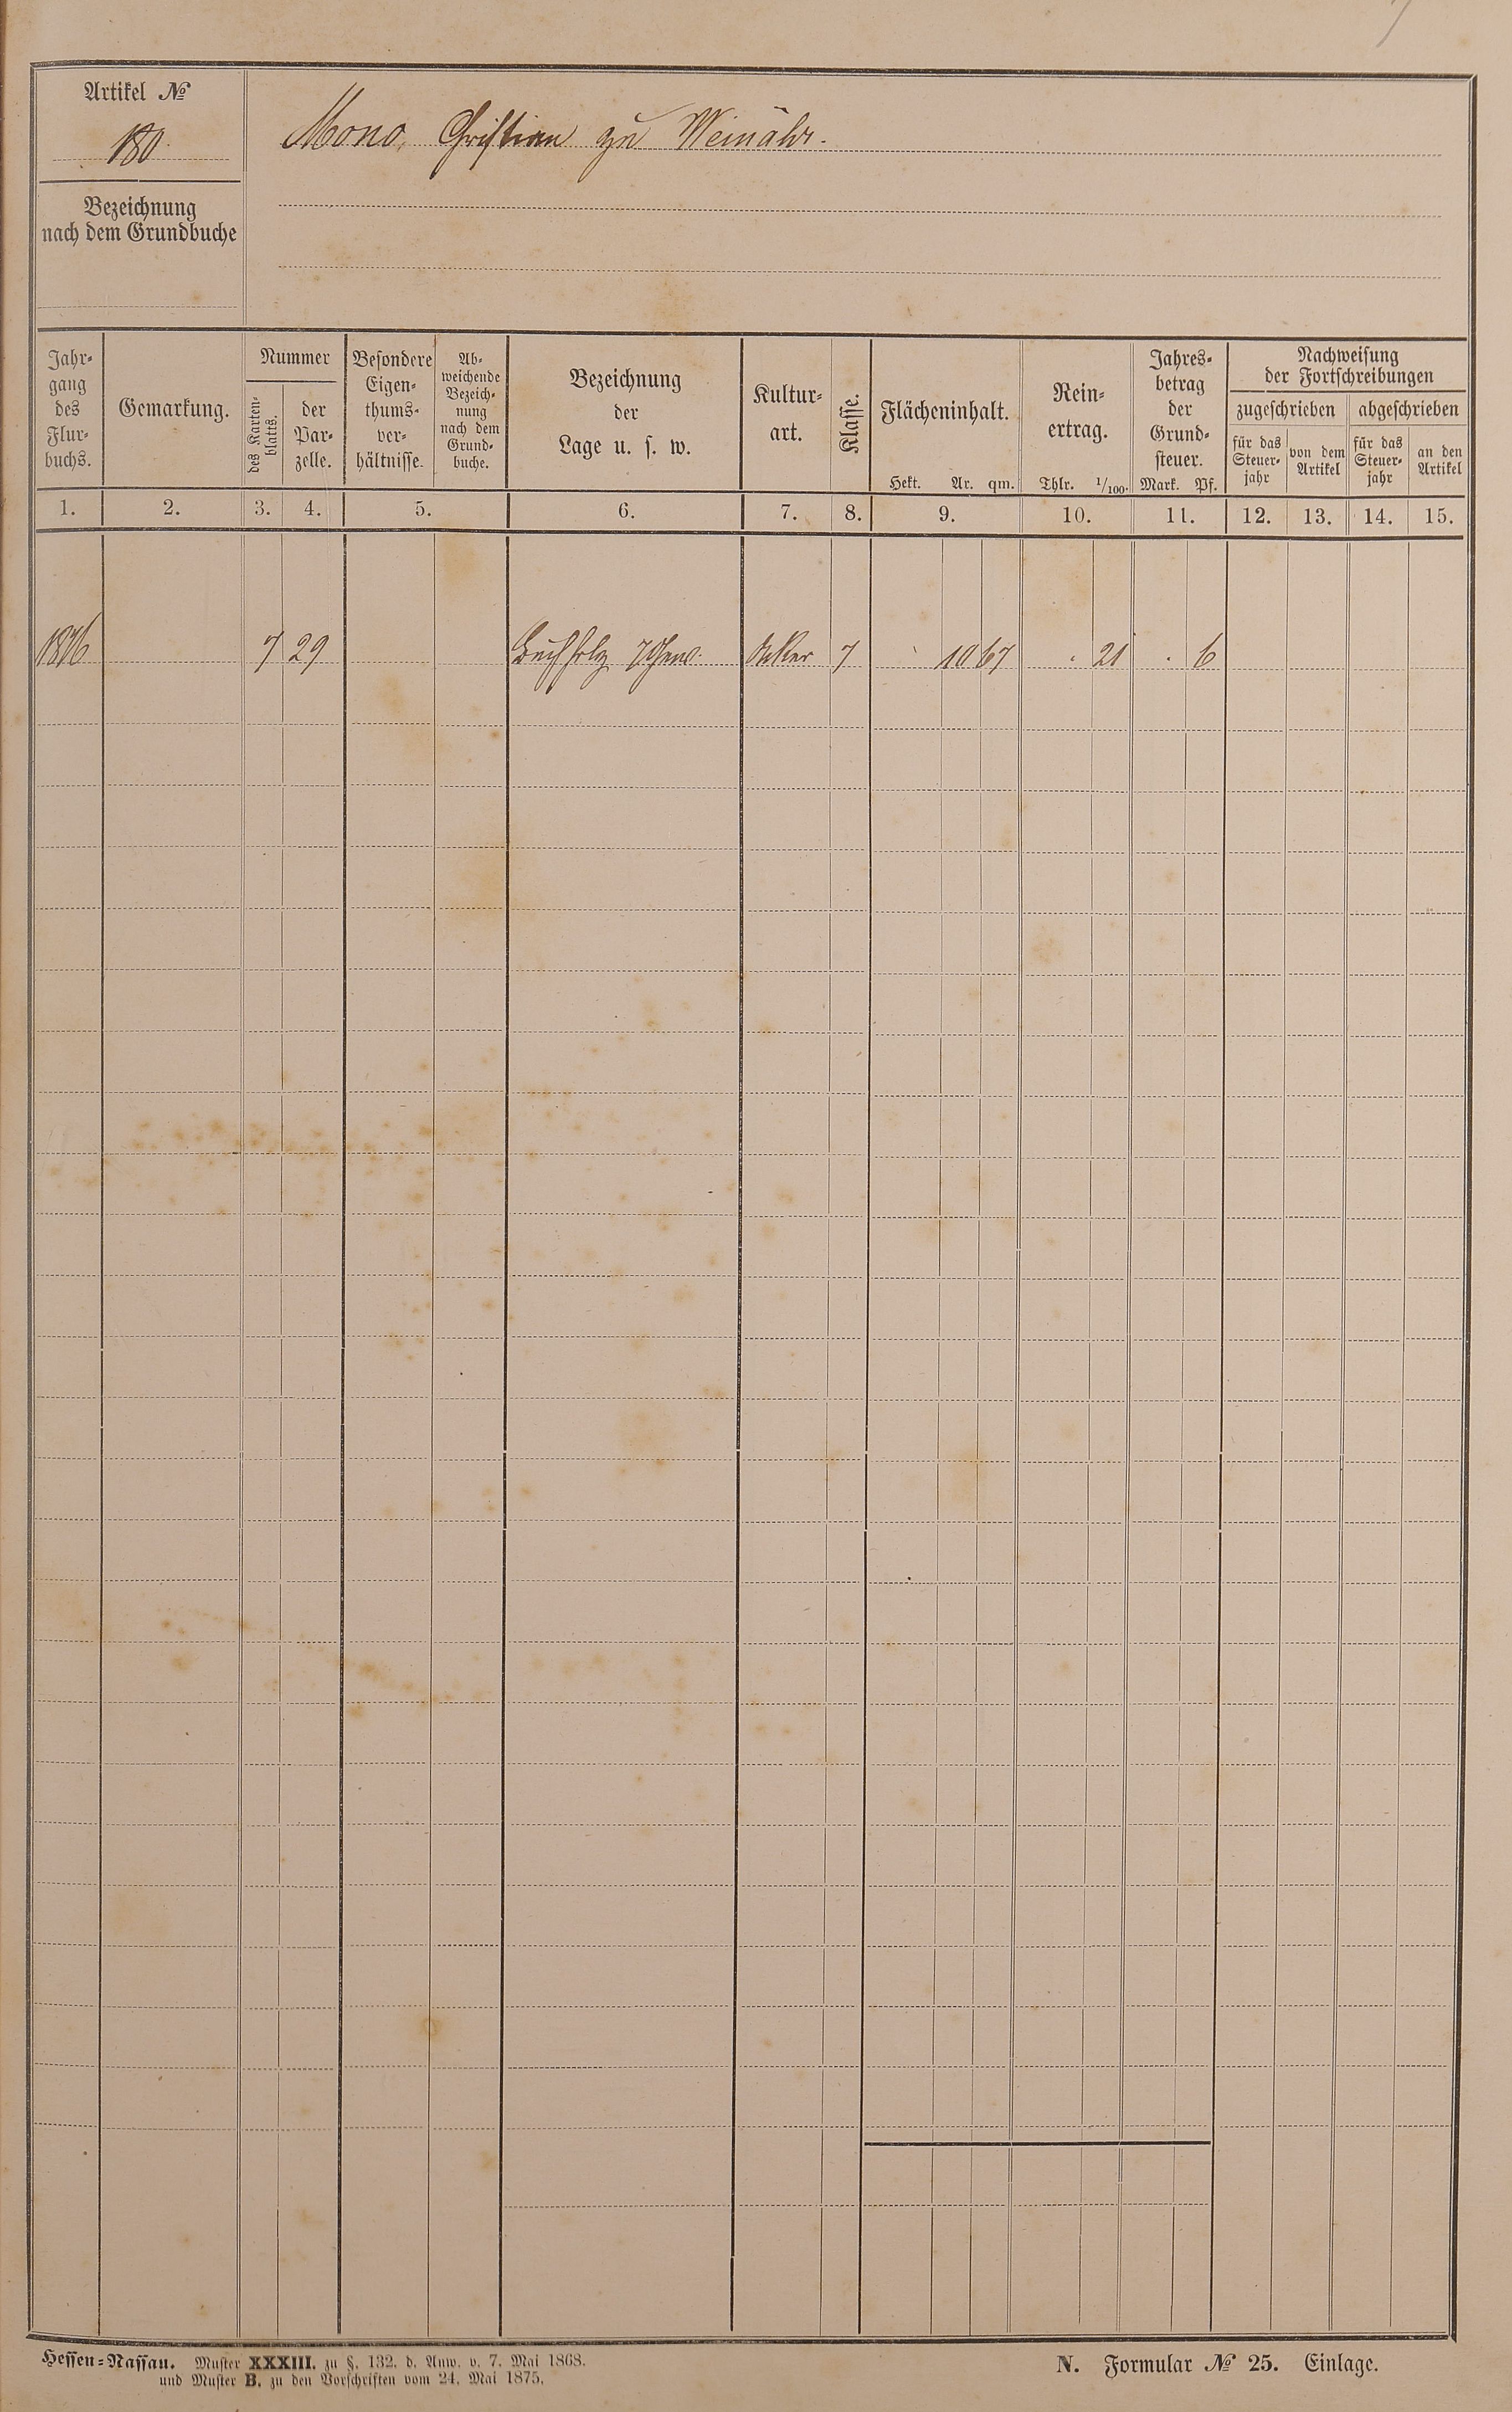 Artikel №
180.
Bezeichnung
nach dem Grundbuche
Mono, Christian zu Weinähr.
Jahr-
gang
des
Flur-
buchs.
Gemarkung.
Nummer
des Karten-
blatts.
der
Par-
zelle.
Besondere
Eigen-
thums-
ver-
hältnisse.
Ab-
weichende
Bezeich-
nung
nach dem
Grund-
buche.
Bezeichnung
der
Lage u. s. w.
Kultur-
art.
Klasse.
Flächeninhalt.
Hekt. Ar. qm.
Rein-
ertrag.
Thlr. 1/100.
Jahres-
betrag
der
Grund-
steuer.
Mark. Pf.
Nachweisung
der Fortschreibungen
zugeschrieben
abgeschrieben
für das
Steuer-
jahr
von dem
Artikel
für das
Steuer-
jahr
an den
Artikel
1. 2. 3. 4. 5. 6. 7. 8. 9. 10. 11. 12. 13. 14. 15.
1876 7 29 Buchholz Acker 7 . 10 67 . 21 . 6
Hessen-Nassau. Muster XXXIII. zu §. 132. d. Anw. v. 7. Mai 1868.
und Muster B. zu den Vorschriften vom 24. Mai 1875.
N. Formular № 25. Einlage.